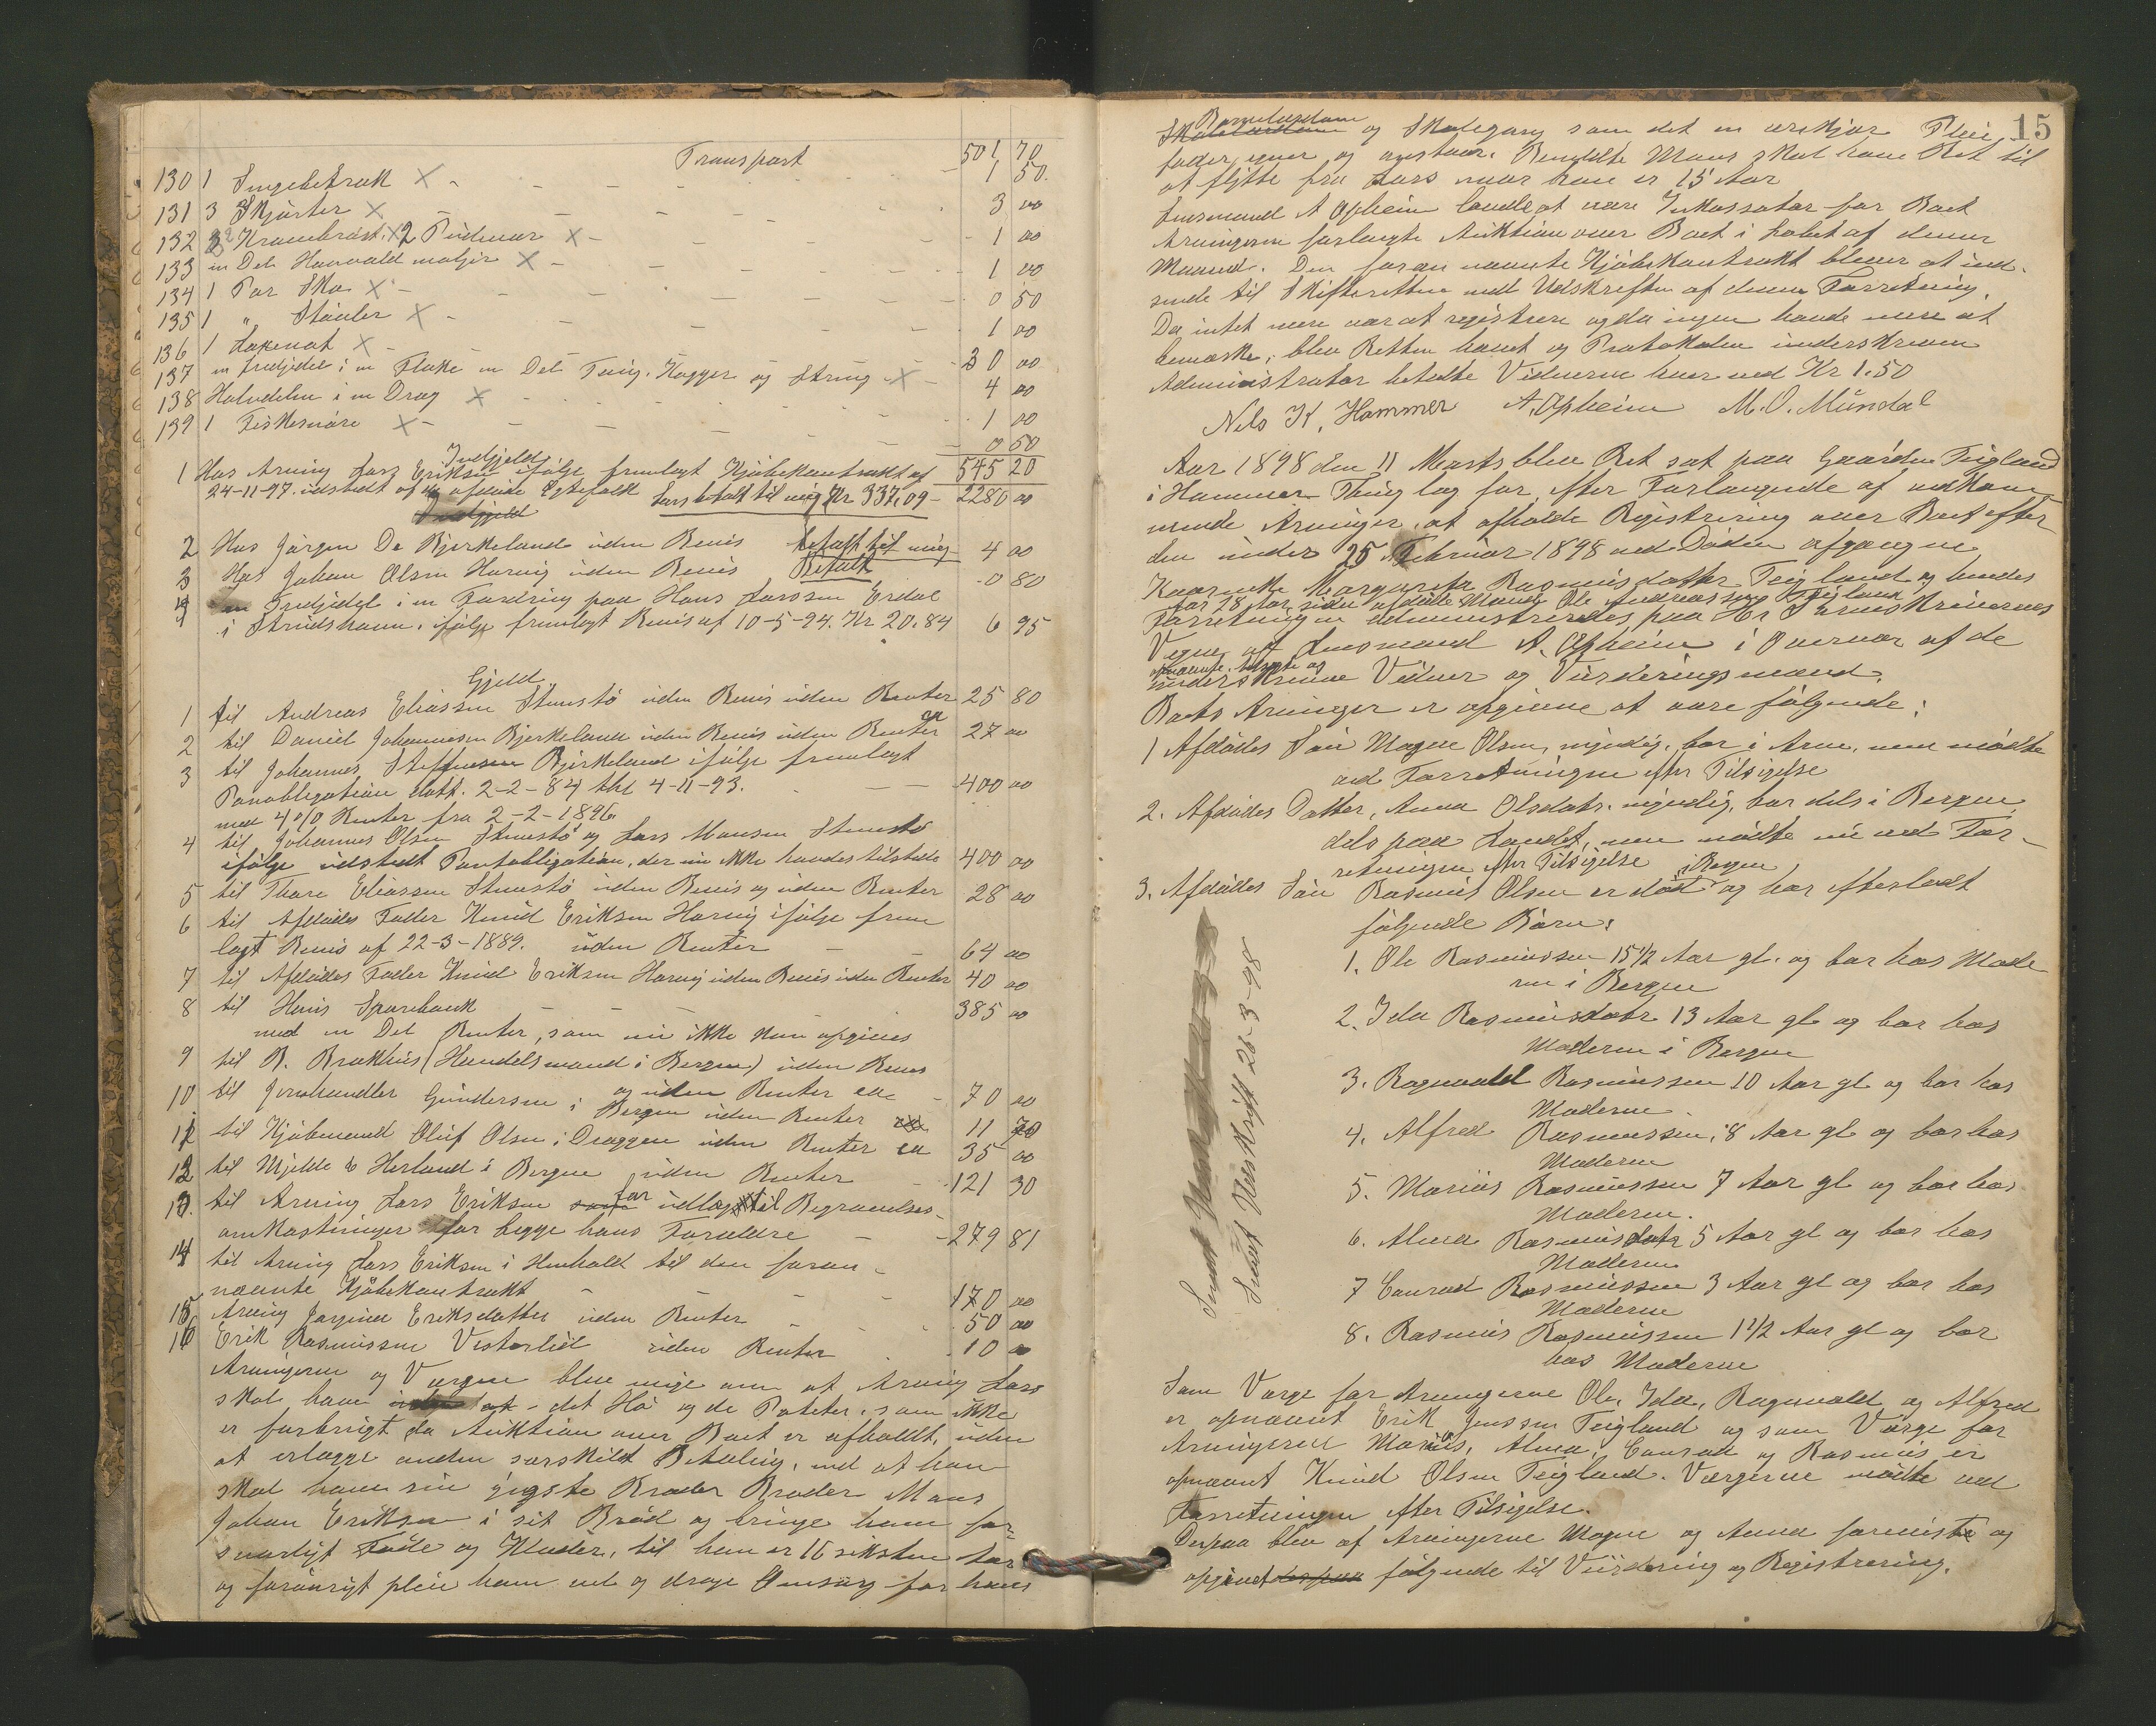 Transport 501 70
130 1 Sengebetræk 1 50
131 3 Skjorter 3 00
132 2 Kramkrøst. 2 Pudevar 1 00
133 en Del Hanvald maljer 1 00
134 1 Par Sko 0 50
135 1 " Støvler 1 00
136 1 Laxenot 30 00
137 en Tredjedel i en Flake en Del Toug, Kagger og Streng 4 00
138 Halvdelen i en Drag 1 00
139 1 Fiskesnøre 0 50
545 20
Indgjeld
1 Hos Arving Lars Eriksen ifølge fremlagt Kjøbekontrakt af
24-11-97 udstedt af de afdøde Egtefolk Lars betalt til mig Kr 337,09 2280 00
Indgjeld
2 Hos Jørgen De Bjerkeland uden Bevis betalt til mig 4 00
3 Hos Johan Olsen Hurvig uden Bevis Betalt 0 80
4 en Tredjedel i en Fordring paa Hans Larssen Erdal
i Strudshavn, ifølge fremlagt Bevis af 10-5-94. Kr 20.84 6 95
Gjeld
1 til Andreas Eliassen Stuestø uden Bevis uden Renter 25 80
2 til Daniel Johannesen Bjerkeland uden Bevis uden Renter ca 27 00
3 til Johannes Steffensen Bjerkeland ifølge fremlagt
Panobligation datt. 2-2-84 thl 4-11-93. 400 00
med 4 % Renter fra 2-2-1896
4 til Johannes Olsen Stuestø og Lars Monsen Stuestø
ifølge udstedt Pantobligation, der nu ikke havdes tilstede 400 00
5 til Thore Eliassen Stuestø uden Bevis og uden Renter 28 00
6 til Afdødes Fader Knud Eriksen Hurvig ifølge frem
lagt Bevis af 22-3-1889. uden Renter 64 00
7 til Afdødes Fader Knud Eriksen Hurvig uden Bevis uden Renter 40 00
8 til Huns Sparebank 385 00
med en Del Renter, som nu ikke kan opgives
9 til B. Brakhus (Handelsmand i Bergen) uden Bevis
og uden Renter ca 70 00
10 til Jernhandler Gundersen i Bergen uden Renter 11 70
11 til Kjøbmand Oluf Olsen i Dræggen uden Renter ca 35 00
12 til Mjelde & Herland i Bergen uden Renter 121 30
13. til Arving Lars Eriksen som for udlæg til Begravelses-
omkostninger for begge hans Forældre 279 81
14 til Arving Lars Eriksen i Henhold til den foran-
nævnte Kjøbekontrakt 170 00
15 Arving Jorgina Eriksdatter uden Renter 50 00
16 Erik Rasmussen Vesterlid uden Renter 10 00
Arvingerne og Værgen blev enige om at Arving Lars
skal have det Hø og de Poteter, som ikke
er forbrugt da Auktion over Boet er afholdt, uden
at erlægge anden særskilt Betaling, ved at han
skal have sin yngste Broder Broder Mons
Johan Eriksen i sit Brød og bringe ham for-
svarligt Føde og Klæder, til han er 16 seksten Aar
og forøvrigt pleie ham vel og drage Omsorg for hans
15
Barnelærdom
Skolelærdom og Skolegang som det en ærekjær Pleie
fader egner og anstaar. Bemeldte Mons skal have Ret til
at flytte fra Lars naar han er 15 Aar
Lensmand A Opheim lovede at være Inkassator for Boet
Arvingerne forlangte Auktion over Boet i Løbet af denne
Maaned. Den foran nævnte Kjøbekontrakt bliver at ind-
sende til Skifteretten med Udskriften af denne Forretning.
Da intet mere var at registrere og da ingen havde mere at
bemærke, blev Retten hævet og Protokolen underskreven
Administrator betalte Vidnerne hver ved Kr 1.50
Nils K. Hammer A. Opheim M. O. Mundal
Aar 1898 den 11 Marts blev Ret sat paa Gaarden Teigland
i Hammer Thinglag for, efter Forlangende af vedkom-
mende Arvinger, at afholde Registrering over Boet efter
den under 25 Februar 1898 ved Døden afgangne
Kaarenke Margaretha Rasmusdatter Teigland og hendes
for 28 Aar siden afdøde Mand Ole Andreassen Teigland
Forretningen administreredes paa Hr Sorenskriverens
Vegne af Lensmand A. Opheim i Overvær af de
opnævnte, tilsagte og
underskrevne Vidner og Vurderingsmænd.
Boets Arvinger er opgivne at være følgende:
1 Afdødes Søn Mogne Olsen, myndig, bor i Arne, men mødte
ved Forretningen efter Tilsigelse
2. Afdødes Datter, Anna Olsdatr. myndig, bor dels i Bergen
dels paa Landet, men mødte nu ved For-
retningen efter Tilsigelse
3. Afdødes Søn Rasmus Olsen er død i Bergen og har efterladt
følgende Børn:
1. Ole Rasmussen 15 1/2 Aar gl. og bor hos Mode
ren i Bergen
2. Ida Rasmusdatr 13 Aar gl og bor hos
Moderen i Bergen
3. Ragnvald Rasmussen 10 Aar gl og bor hos
Moderen.
4. Alfred Rasmussen, 8 Aar gl og bor hos
Moderen
5. Marius Rasmussen 7 Aar gl og bor hos
Moderen.
6. Alma Rasmusdatr 5 Aar gl og bor hos
Moderen
7 Conrad Rasmussen 3 Aar gl og bor hos
Moderen
8. Rasmus Rasmussen 1 1/2 Aar gl og bor
hos Moderen
Sendt Udskrift 26-3-98
Som Værge for Arvingerne Ole, Ida, Ragnvald og Alfred
er opnævnt Erik Jenssen Teigland og som Værge for
Arvingerne Marius, Alma, Conrad og Rasmus er
opnævnt Knud Olsen Teigland. Værgerne mødte ved
Forretningen efter Tilsigelse.
Derpaa blev af Arvingerne Mogne og Anna forevist og
opgivet derpaa følgende til Vurdering og Registrering.